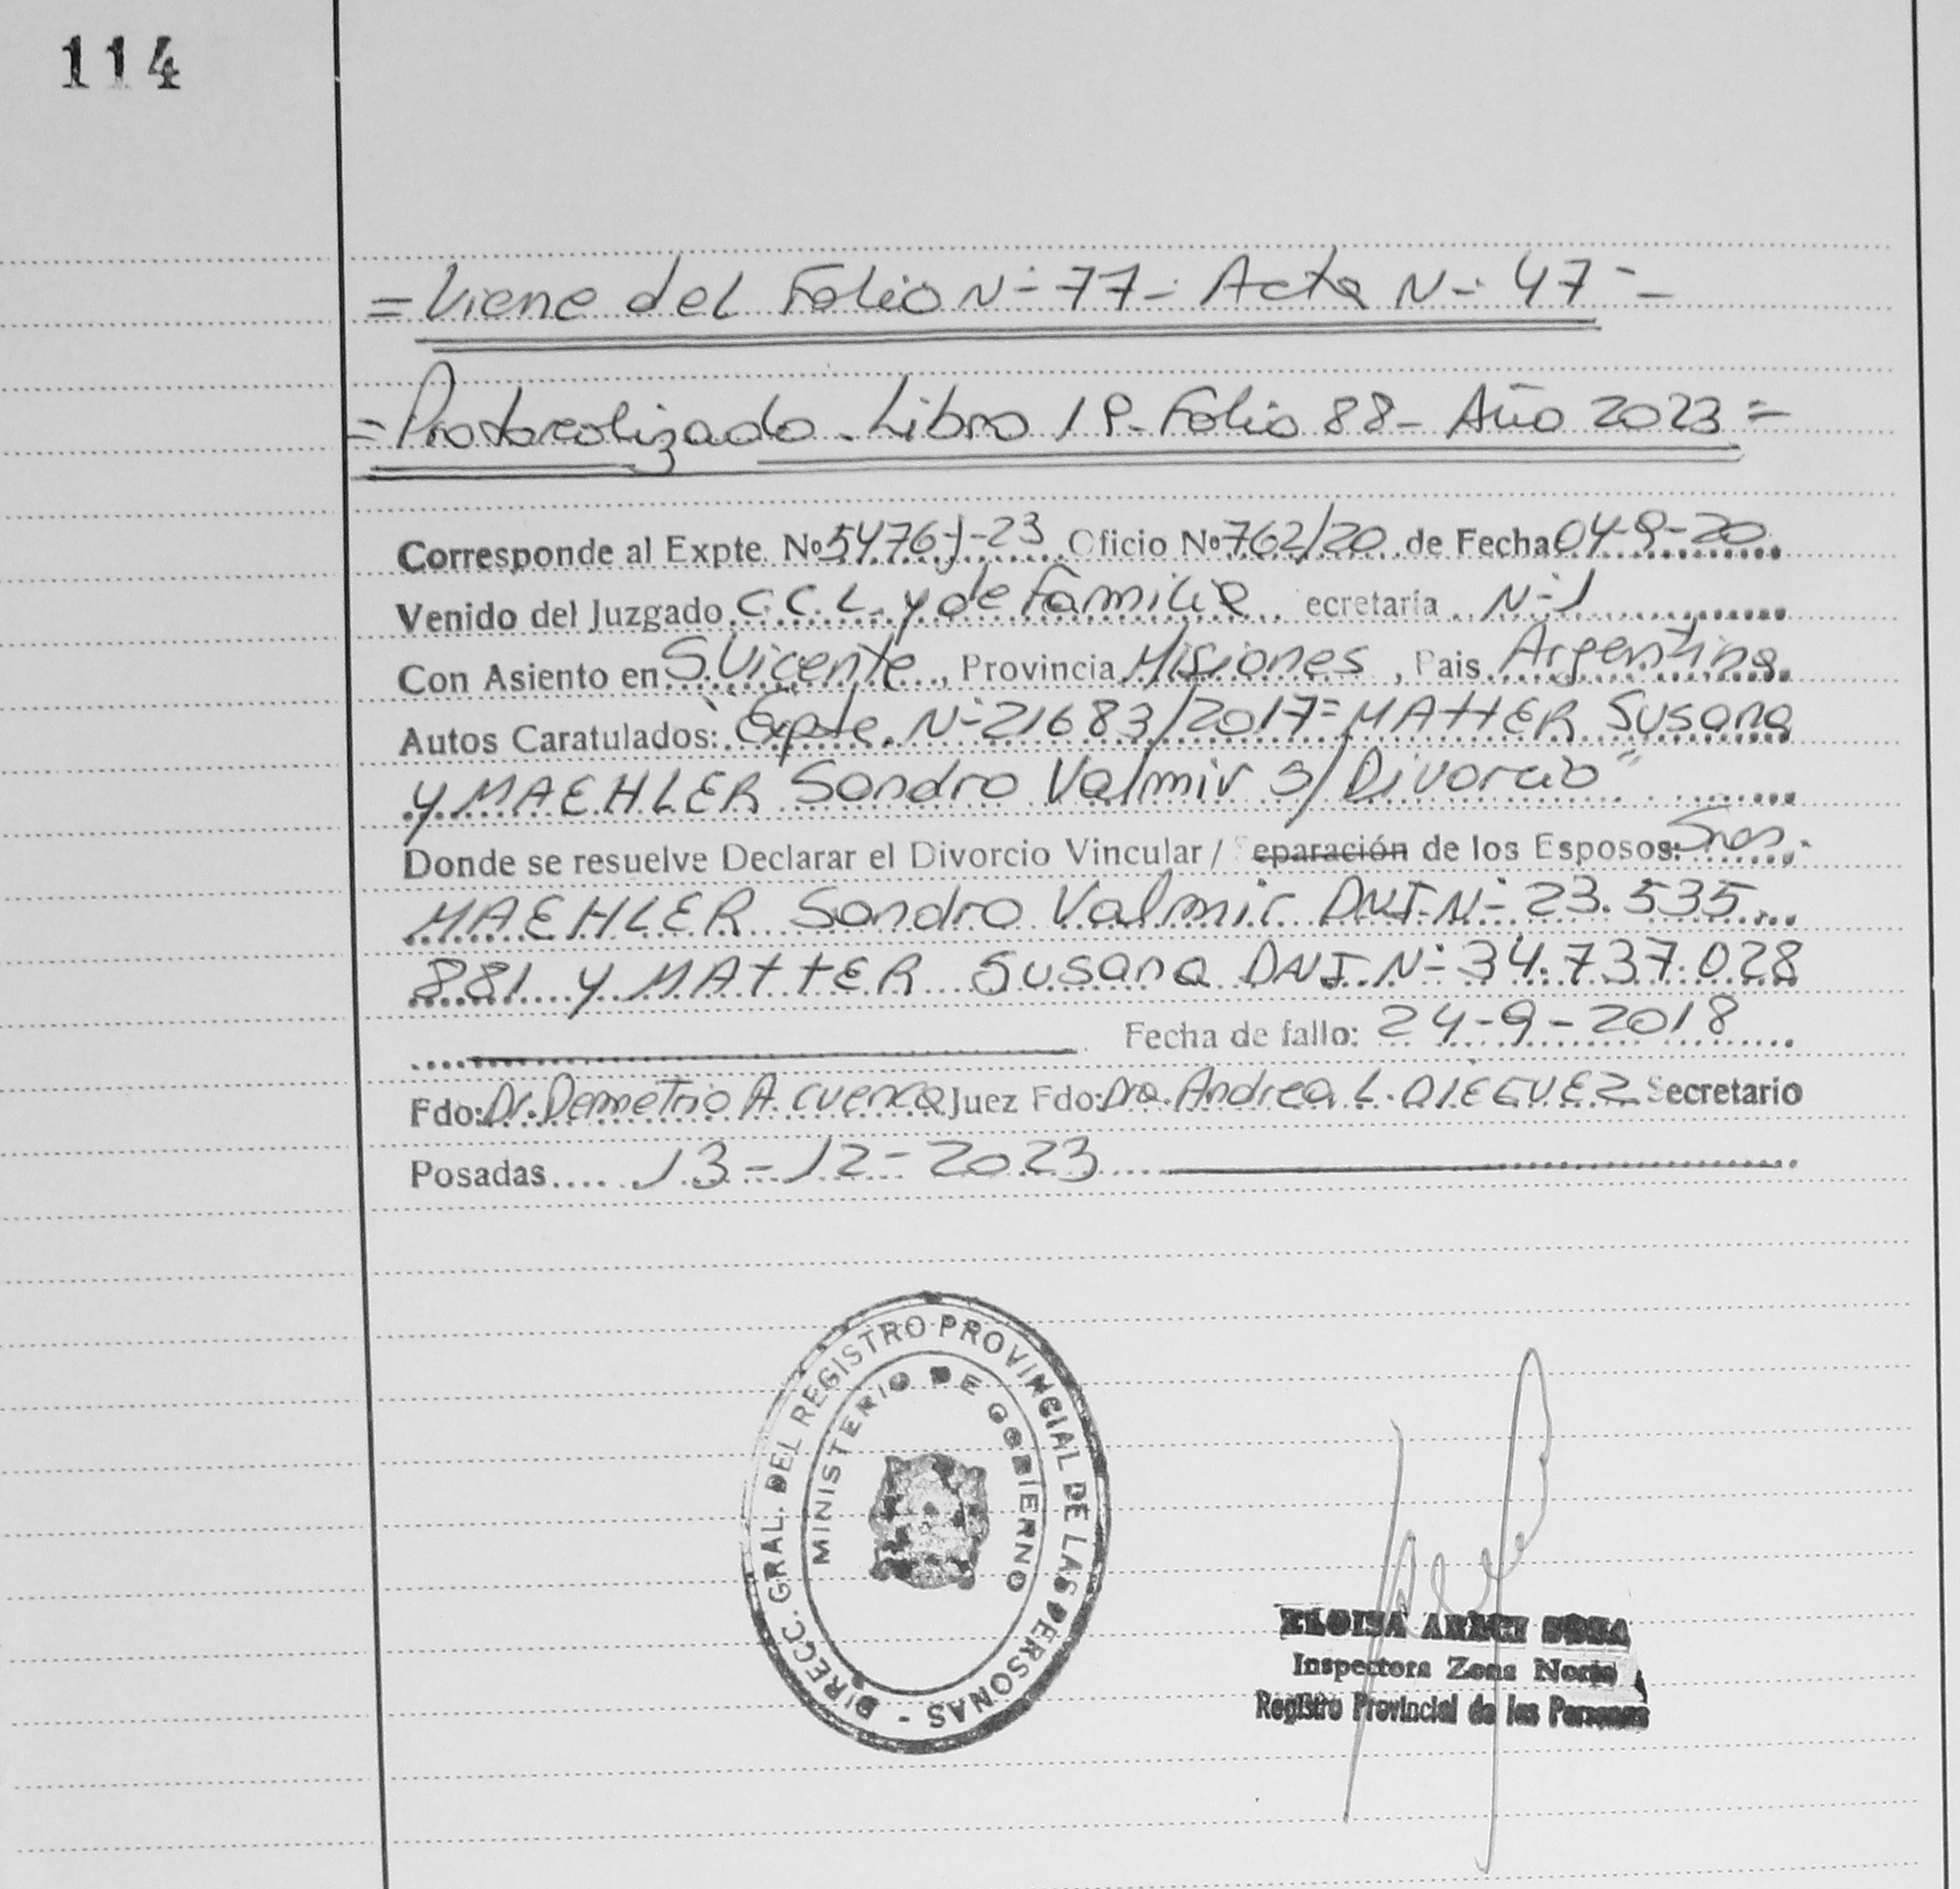 114
= Viene del Folio N- 77 - Acta N- 47 =
= Protocolizado - Libro 1P - Folio 88 - Año 2023 =
Corresponde al Expte. Nº 5476-J-23 Oficio Nº 762/20 de Fecha 04-9-20
Venido del Juzgado C.C.L. y de Familia ecretaría N-1
Con Asiento en S. Vicente, Provincia Misiones, Pais Argentina
Autos Caratulados: "Expte. N- 21683/2017= MAttER Susana
y MAEHLER Sandro Valmir s/ Divorcio"
Donde se resuelve Declarar el Divorcio Vincular / Separación de los Esposos: Sres.
MAEHLER Sandro Valmir DNI N- 23.535
881 y MAttER Susana DNI N- 34.737.028
Fecha de fallo: 24-9-2018
Fdo: Dr. Demetrio A. Cuenca Juez Fdo: Dra. Andrea L. DIEGUEZ Secretario
Posadas 13-12-2023
DIRECC. GRAL. DEL REGISTRO PROVINCIAL DE LAS PERSONAS -
MINISTERIO DE GOBIERNO
ELOISA ARACI SOSA
Inspectora Zona Norte
Registro Provincial de las Personas